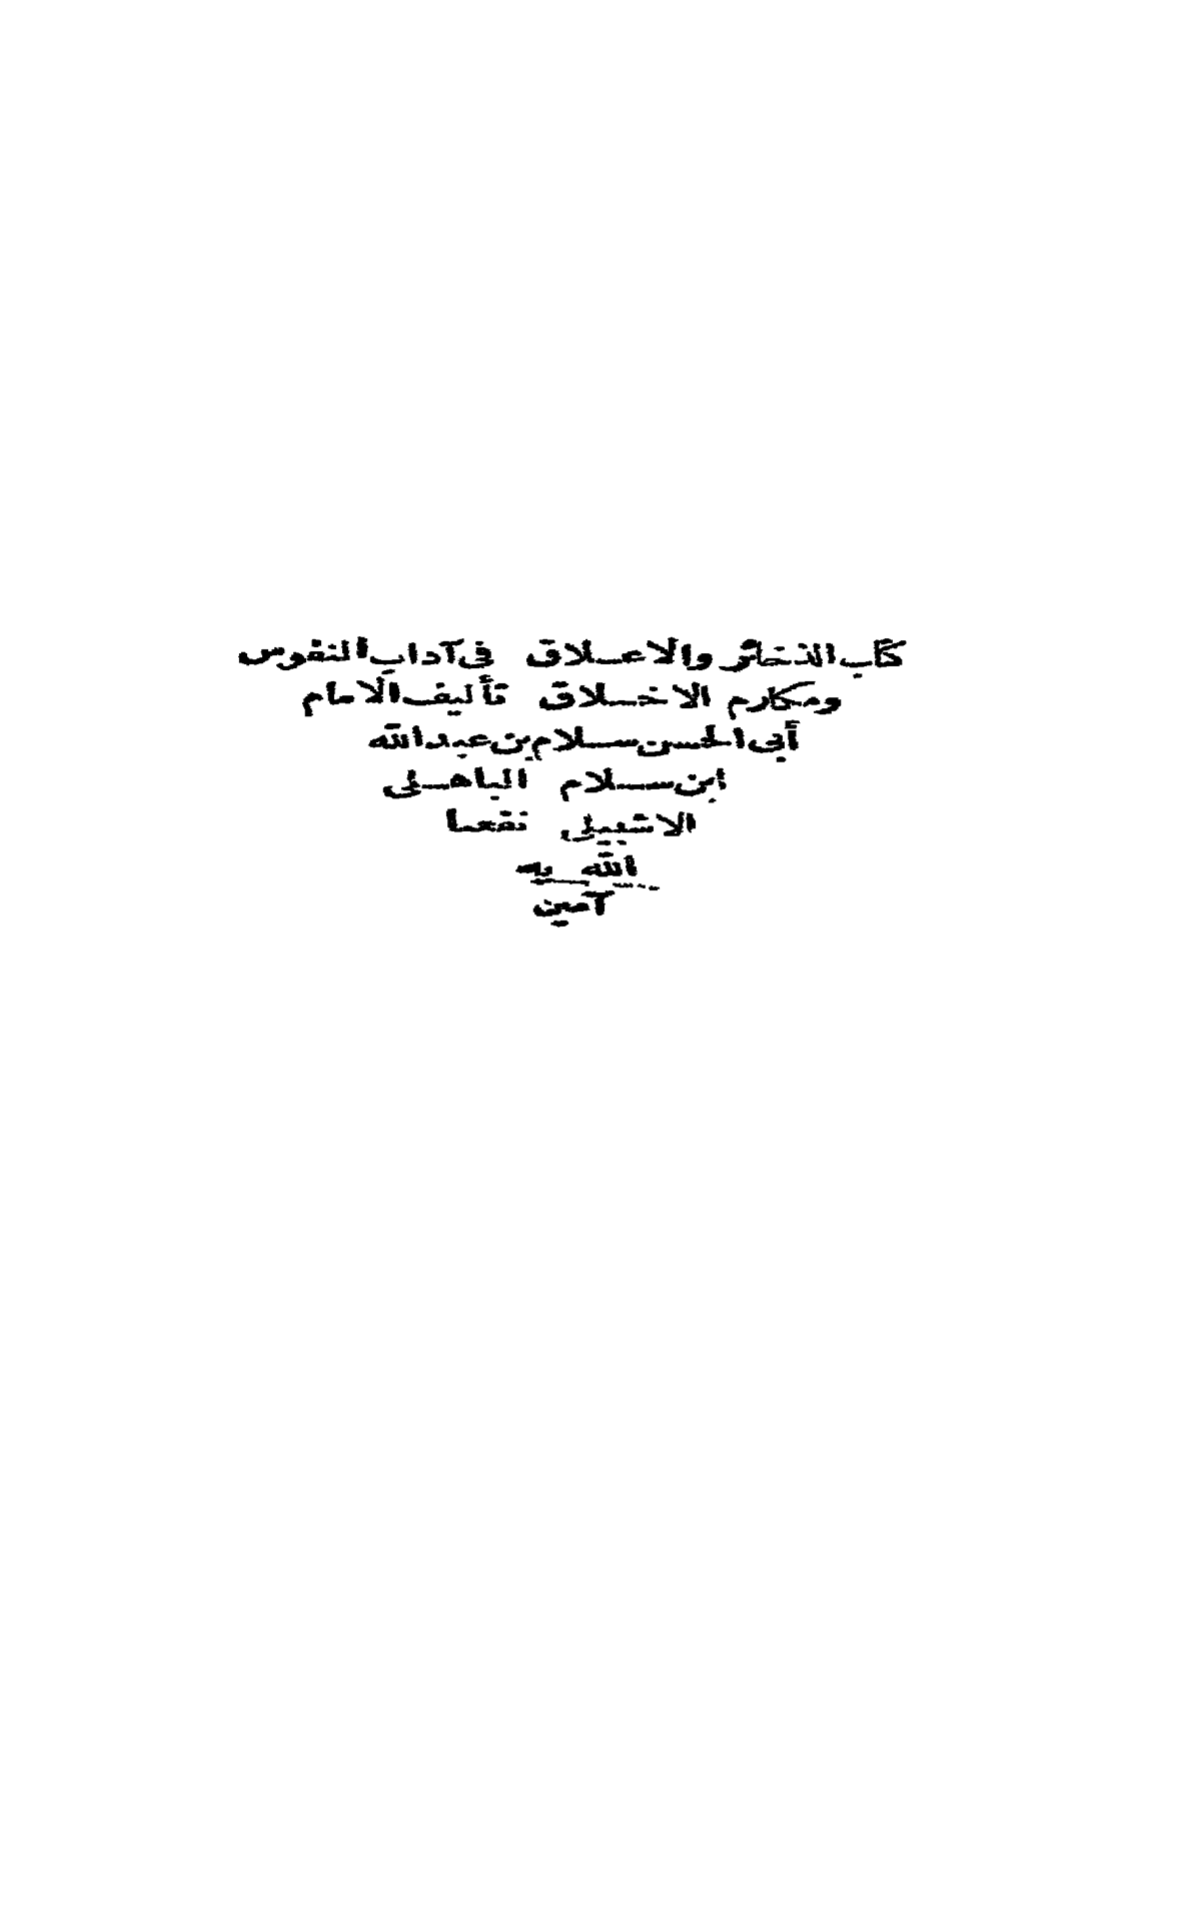 كتاب الذخائر والاعلاق في آداب النفوس
ومكارم الاخلاق تأليف الامام
أبي الحسن سلام بن عبد الله
ابن سلام الباهلي
الاشبيلي نفعنا
الله به
آمين